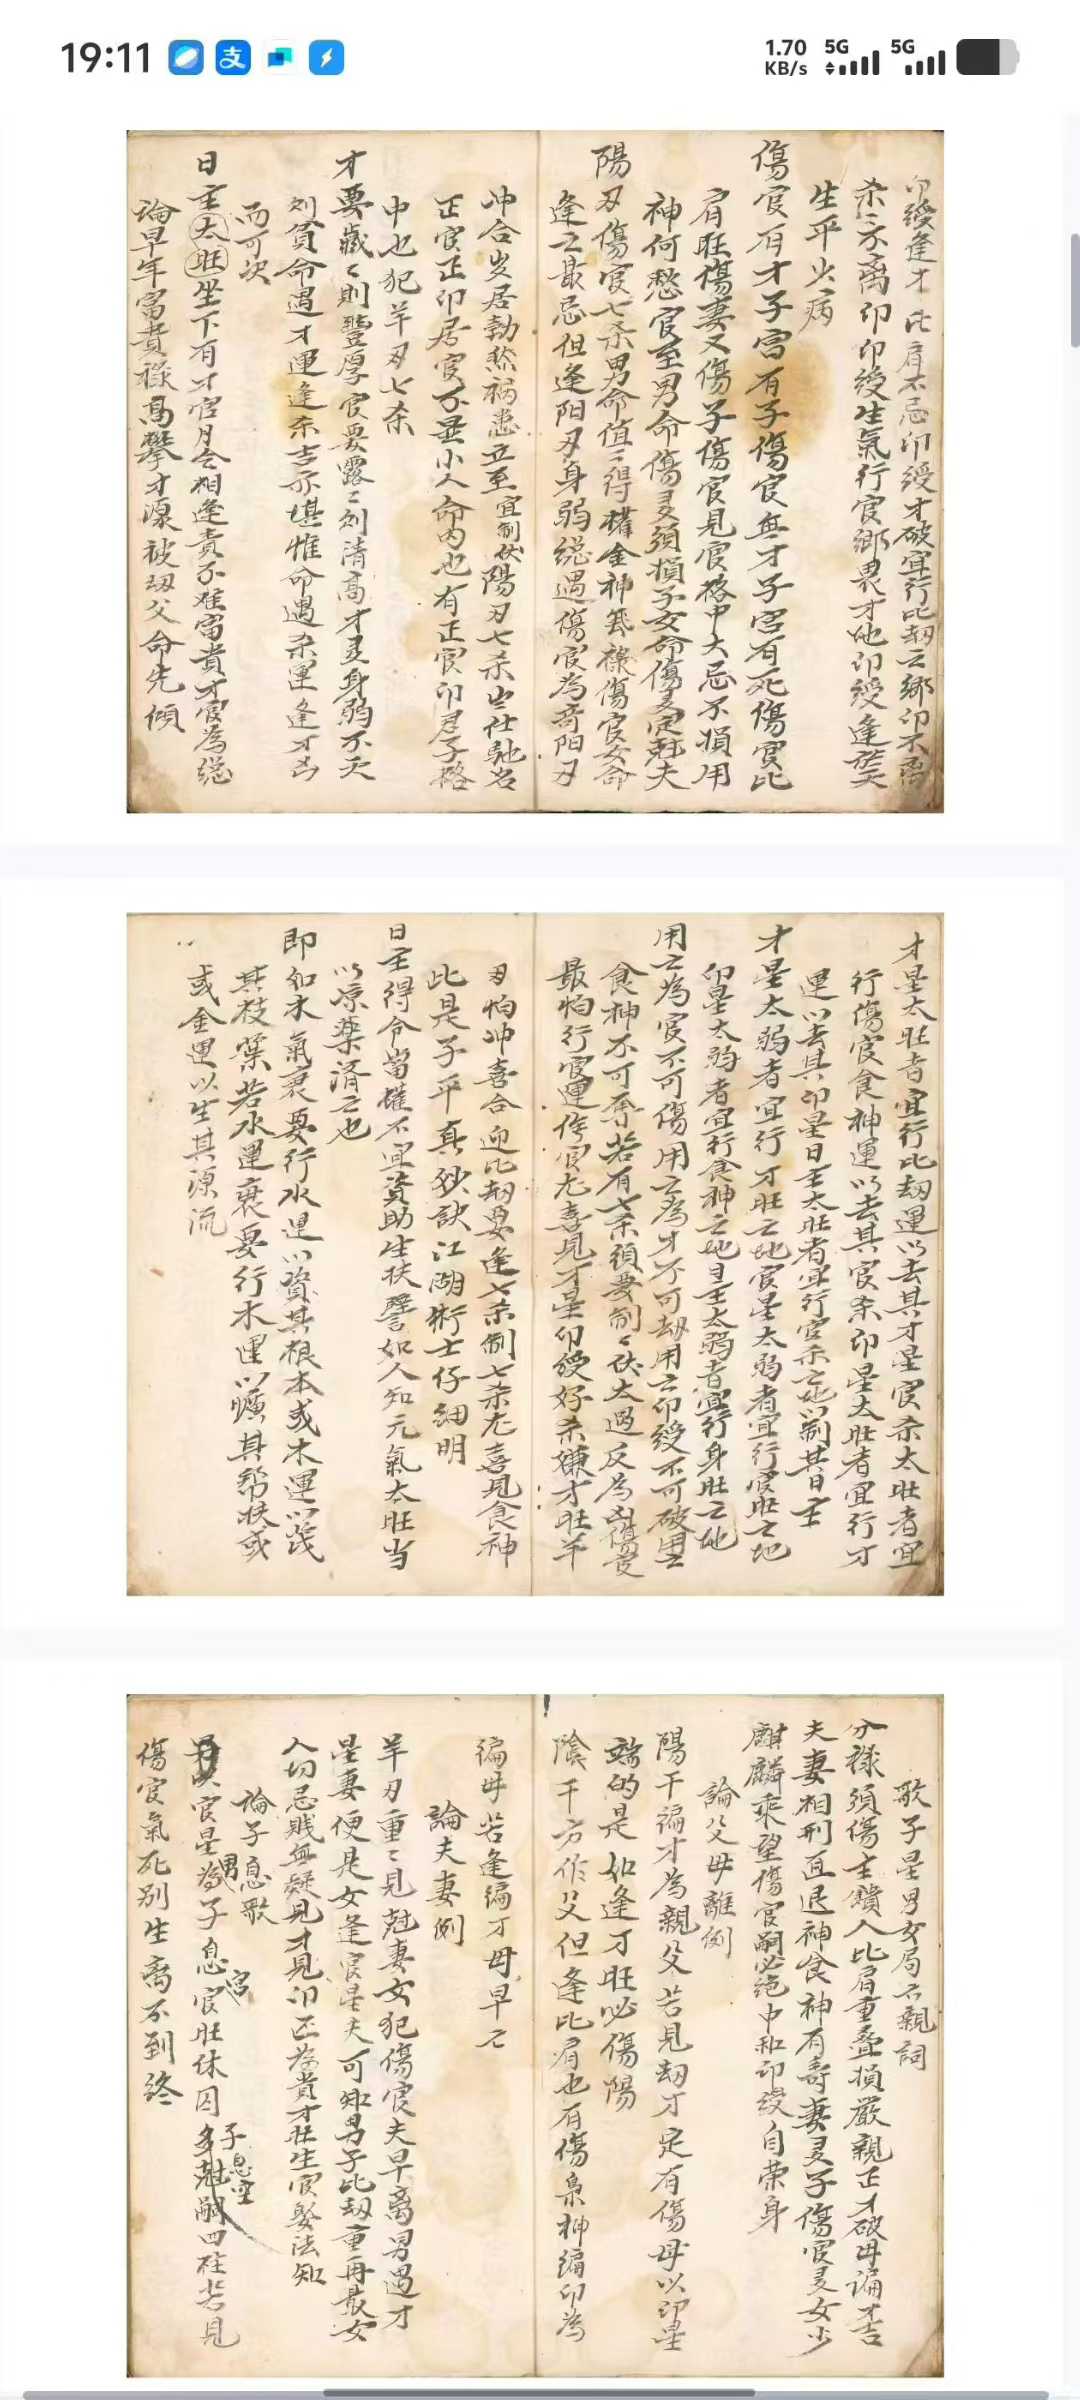 19:11
1.70 KB/s 5G 5G
印綬逢才比肩不忌印綬才破宜行比劫之鄉印不离
杀杀不离印印綬生氣行官鄉畏才地印綬逢
生平少病
傷官有才子宮有子傷官無才子宮有死傷官比
肩旺傷妻又傷子傷官見官格中大忌不損用
神何愁官至男命傷灵須損子女命傷灵定尅夫
陽刃傷官七杀男命值之得權金神無祿傷官女命
逢之最忌但逢阳刃身弱緦遇傷官為奇阳刃
冲合岁居勃然禍患立至宜制伏陽刃七杀出仕馳名
正官正印居官不畢小人命內也有正官印君子格
中也犯羊刃七杀
才要藏〻則豐厚官要露〻則清高才灵身弱不夭
則貧命遇才運逢杀吉亦堪惟命遇杀運逢才凶
而可决
日主太旺坐下有才官月令相逢貴不难富貴才官為緦
論早年富貴祿高攀才源被劫父命先傾
才星太旺者宜行比劫運以去其才星官杀太旺者宜
行傷官食神運以去其官杀印星太旺者宜行才
運以去其印星日主太旺者宜行官杀之地以制其日主
才星太弱者宜行才旺之地官星太弱者宜行官旺之地
印星太弱者宜行食神之地日主太弱者宜行身旺之地
用之為官不可傷用之為才不可劫用之印綬不可破用之
食神不可奪若有七杀須要制〻伏太過反為凶傷官
最怕行官運傷官尤喜見才星印綬好杀嫌才旺羊
刃怕冲喜合迎比劫要逢七杀制七杀尤喜見食神
此是子平真妙訣江湖術士仔細明
日主得令當權不宜資助生扶譬如人知元氣太旺当
以凉藥済之也
即如木氣衰要行水運以資其根本或木運以茂
其枝葉若水運衰要行水運以曠其帮扶或
或金運以生其源流
歌子星男女局六親詞
分祿須傷主饋人比肩重叠損嚴親正才破母偏才吉
夫妻相刑直退神食神有壽妻灵子傷官灵女少
麒麟乖望傷官嗣必绝中和印綬自荣身
論父母離例
陽干偏才為親父若見劫才定有傷母以印星
端的是如逢才旺必傷陽
陰干方作父但逢比肩也有傷梟神偏印為
偏母若逢偏才母早亡
論夫妻例
羊刃重〻見尅妻女犯傷官夫早離男遇才
星妻便是女逢官星夫可知男子比劫重再最女
人切忌賎無疑見才見印正為貴才旺生官娶法知
論子息歌
男
官星為子息官旺休囚多尅嗣四柱若見
宮
子息空
傷官氣死別生离不到终